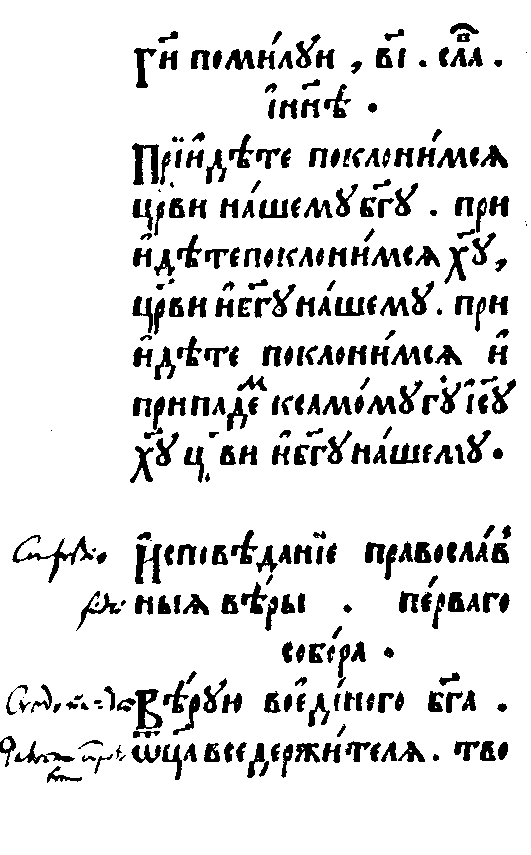 Гн҃и поми́луи , в҃і . сла̑в .
і҆ нн҃ѣ .
Прїи҆дѣ́те поклони́мсѧ
цр҃ви на́шемꙋ бг҃ꙋ . при
и҆дѣ́те поклони́мсѧ хс҃ꙋ ,
цр҃ви и҆ бг҃ꙋ на́шемꙋ . при
и҆дѣ́те поклони́мсѧ и҆
припаде́м к само́мꙋ гꙋ҃ і҆с҃ꙋ
хс҃ꙋ ц҃рви и҆ бг҃ꙋ на́шемꙋ .
И҆сповѣ́данїе правосла́в
ныѧ вѣ́ры . пе́рваго
собо́ра .
Вѣ́рꙋю во є҆ди́ного бг҃а .
ѿца҃ вседержи́телѧ . тво